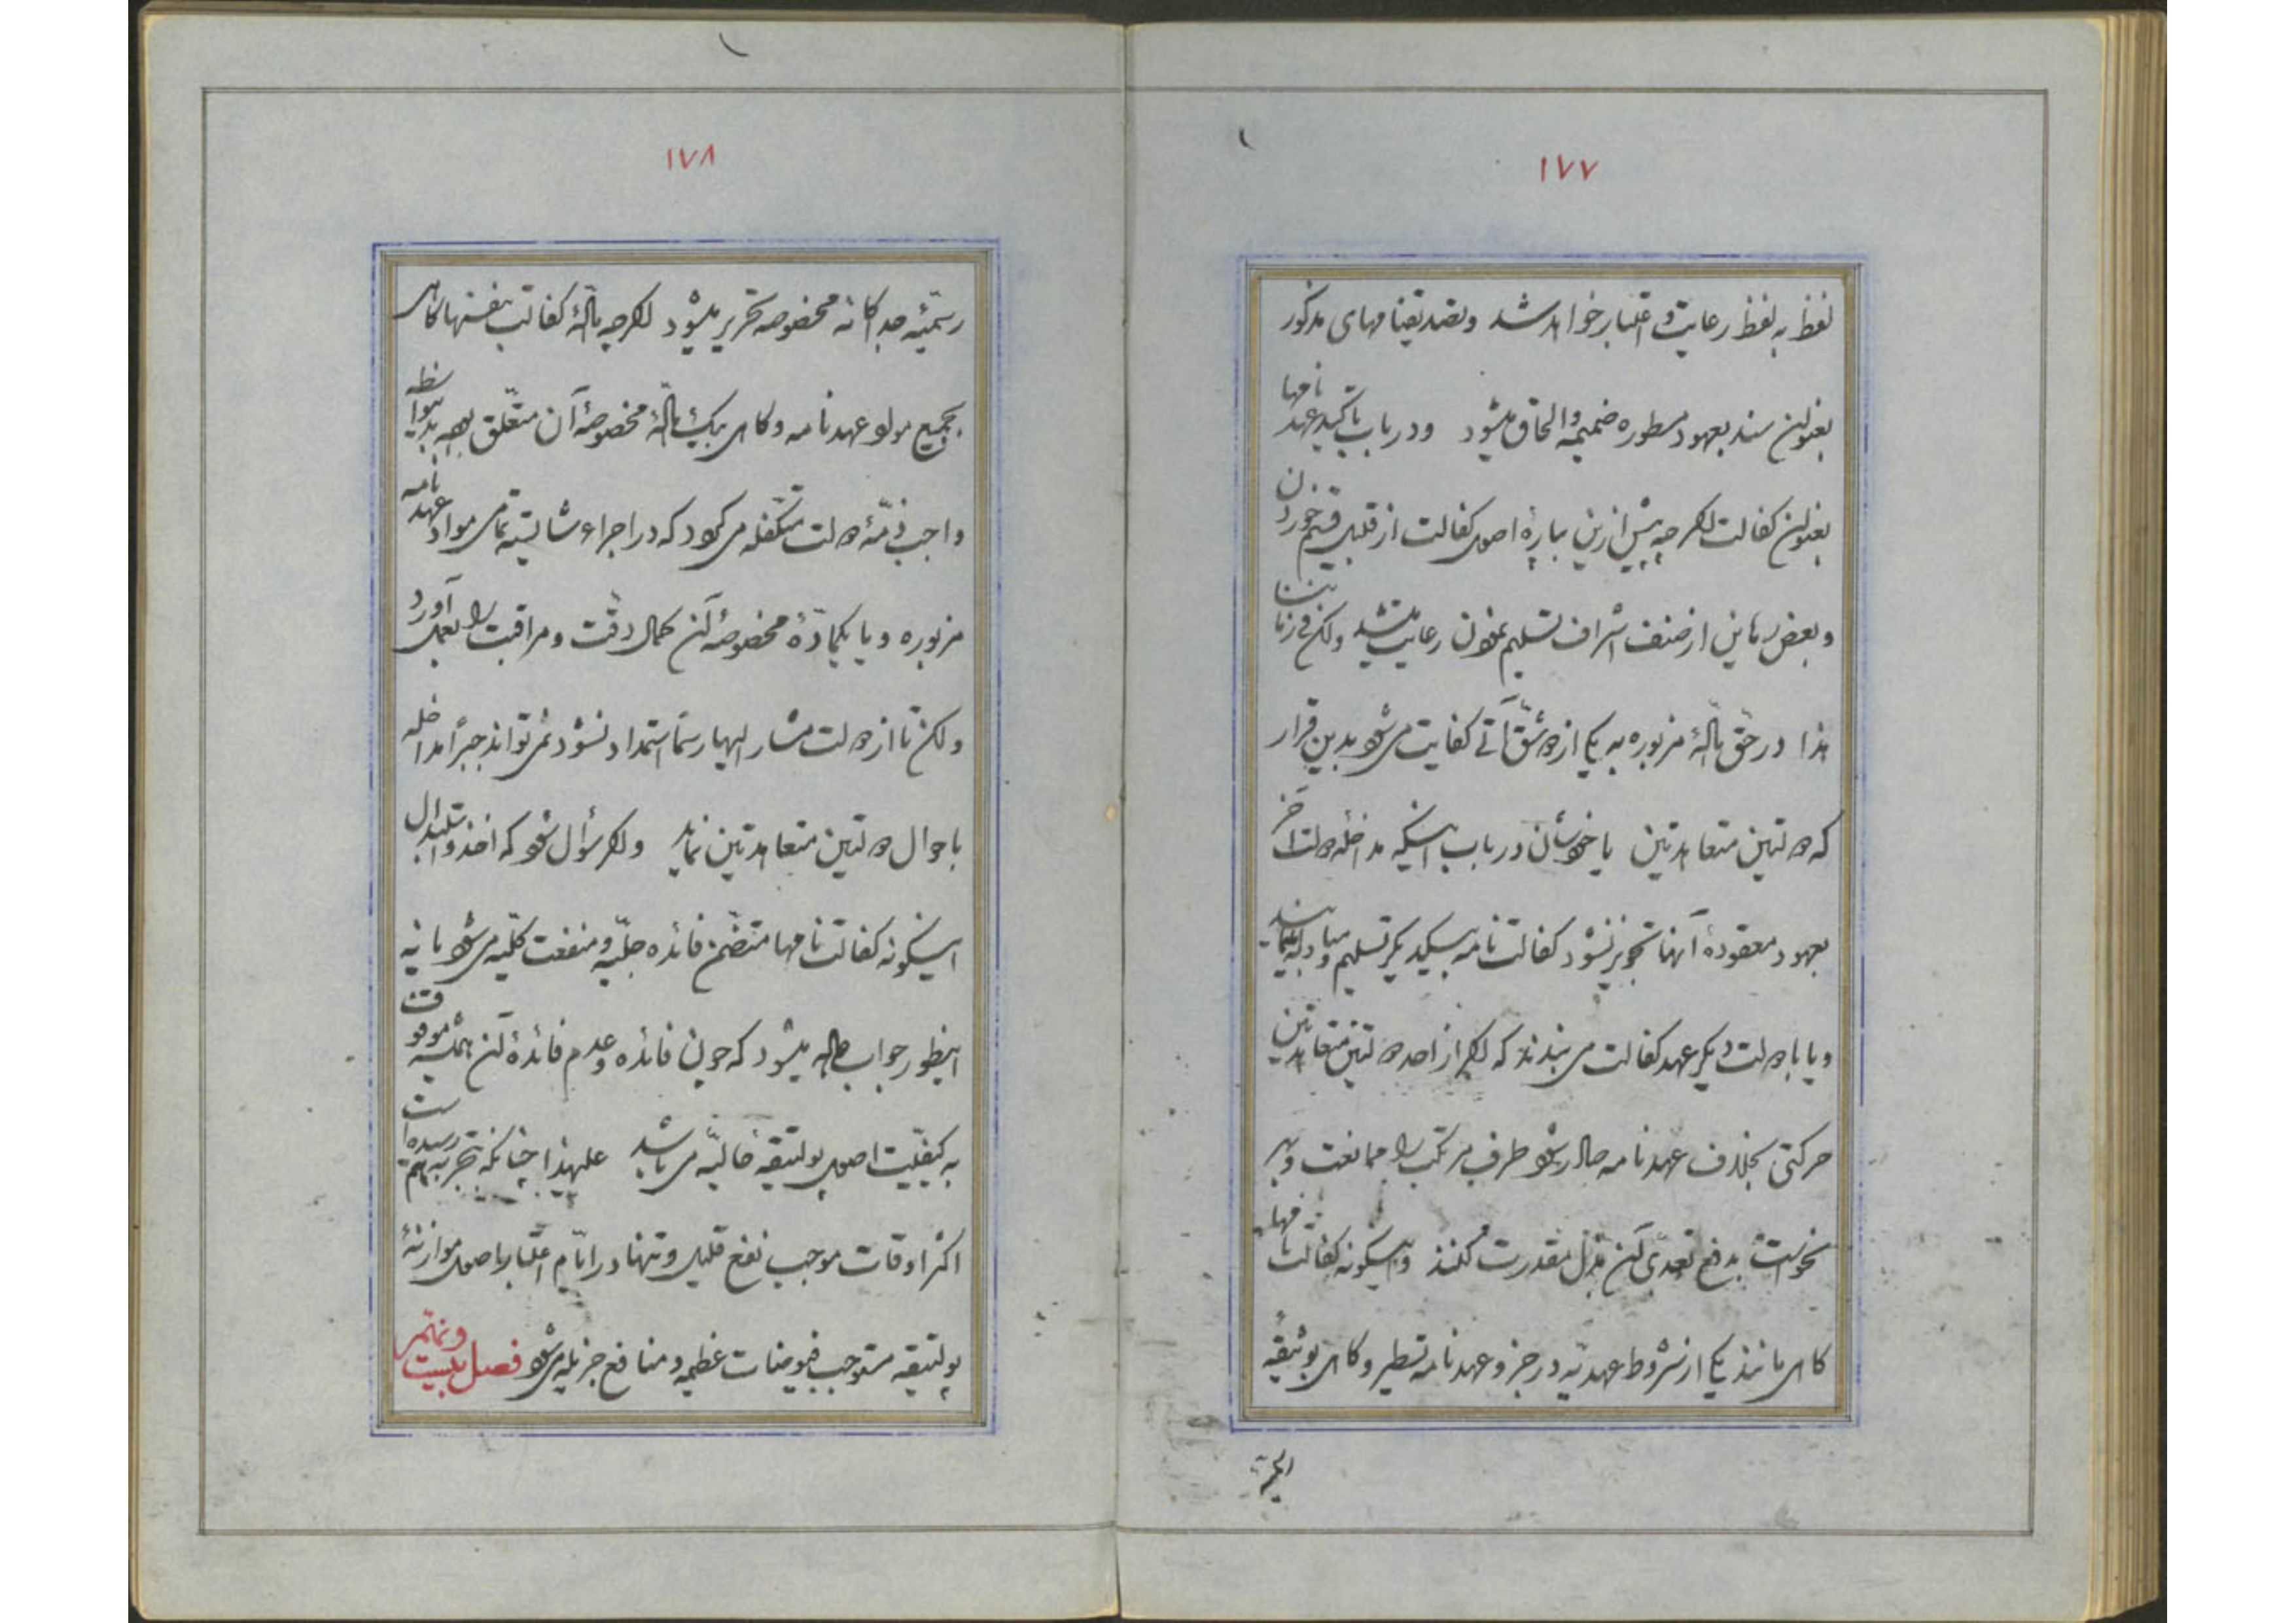 ۱۷۷
لفظ به لفظ رعایت و اعتبار خواهد شد و تصدیقنامهای مذکور
بعنوان سند بعهود مسطوره ضمیمه و الحاق میشود و در باب تاکید عهد نامها
بعنوان کفالت اگر چه پیش ازین بپاره اصول کفالت از قبیل قسم خوردن
و بعض رهاین از صنف اشراف تسلیم نمودن رعایت میشد ولکن فی زماننا
هذا در حق مآلهٔ مزبوره به یکی از دو شق آتی کفایت می شود بدین قرار
که دولتین متعاهدتین یا خودشان در باب اینکه مداخله دولت آخر
بعهود معقودهٔ آنها تجویز نشود کفالت نامه بیکدیگر تسلیم و مبادله
و یا با دولت دیگر عهد کفالت می بندند که اگر از احد دولتین متعاهدتین
حرکتی بخلاف عهدنامه صادر شود طرف مرتکب را ممانعت و بر
نخواست بدفع تعدی آن بذل مقدرت کنند و اینگونه کفالت نامها
کاهی مانند یکی از شروط عهدیه در جزو عهدنامه تسطیر و کاهی بوثیقه
۱۷۸
رسمیّه جداکانه مخصوصه تحریر میشود اگر چه مآلهٔ کفالت بنفسها کاهی
بجمیع مواد عهدنامه و کاهی بیک مآلهٔ مخصوصهٔ آن متعلق
واجب ذمّهٔ دولت متکفله می کردد که در اجراء شایسته تمامی مواد عهد نامه
مزبوره و یا یکمادّهٔ مخصوصهٔ آن کمال دقت و مراقبت را بعمل آورد
ولکن تا از دولت مشار الیها رسماً استمداد نشود نمی تواند جبراً مداخله
باحوال دولتین متعاهدتین نماید و اگر سؤال شود که اخذ و استبدال
اینکونه کفالت نامها متضمن فائده جلیّه و منفعت کلّیه می شود یا نه
اینطور جواب داده میشود که چون فائده و عدم فائدهٔ آن همیشه موقوفست
به کیفیّت اصول پولتیقه حالیّه می باشد علیهذا چنانکه بتجربه هم رسیده است
اکثر اوقات موجب نفع قلیل و تنها در ایّام اعتبار اصول موازنهٔ
پولتیقه مستوجب فیوضات عظیمه و منافع جزیله می شود فصل بیست